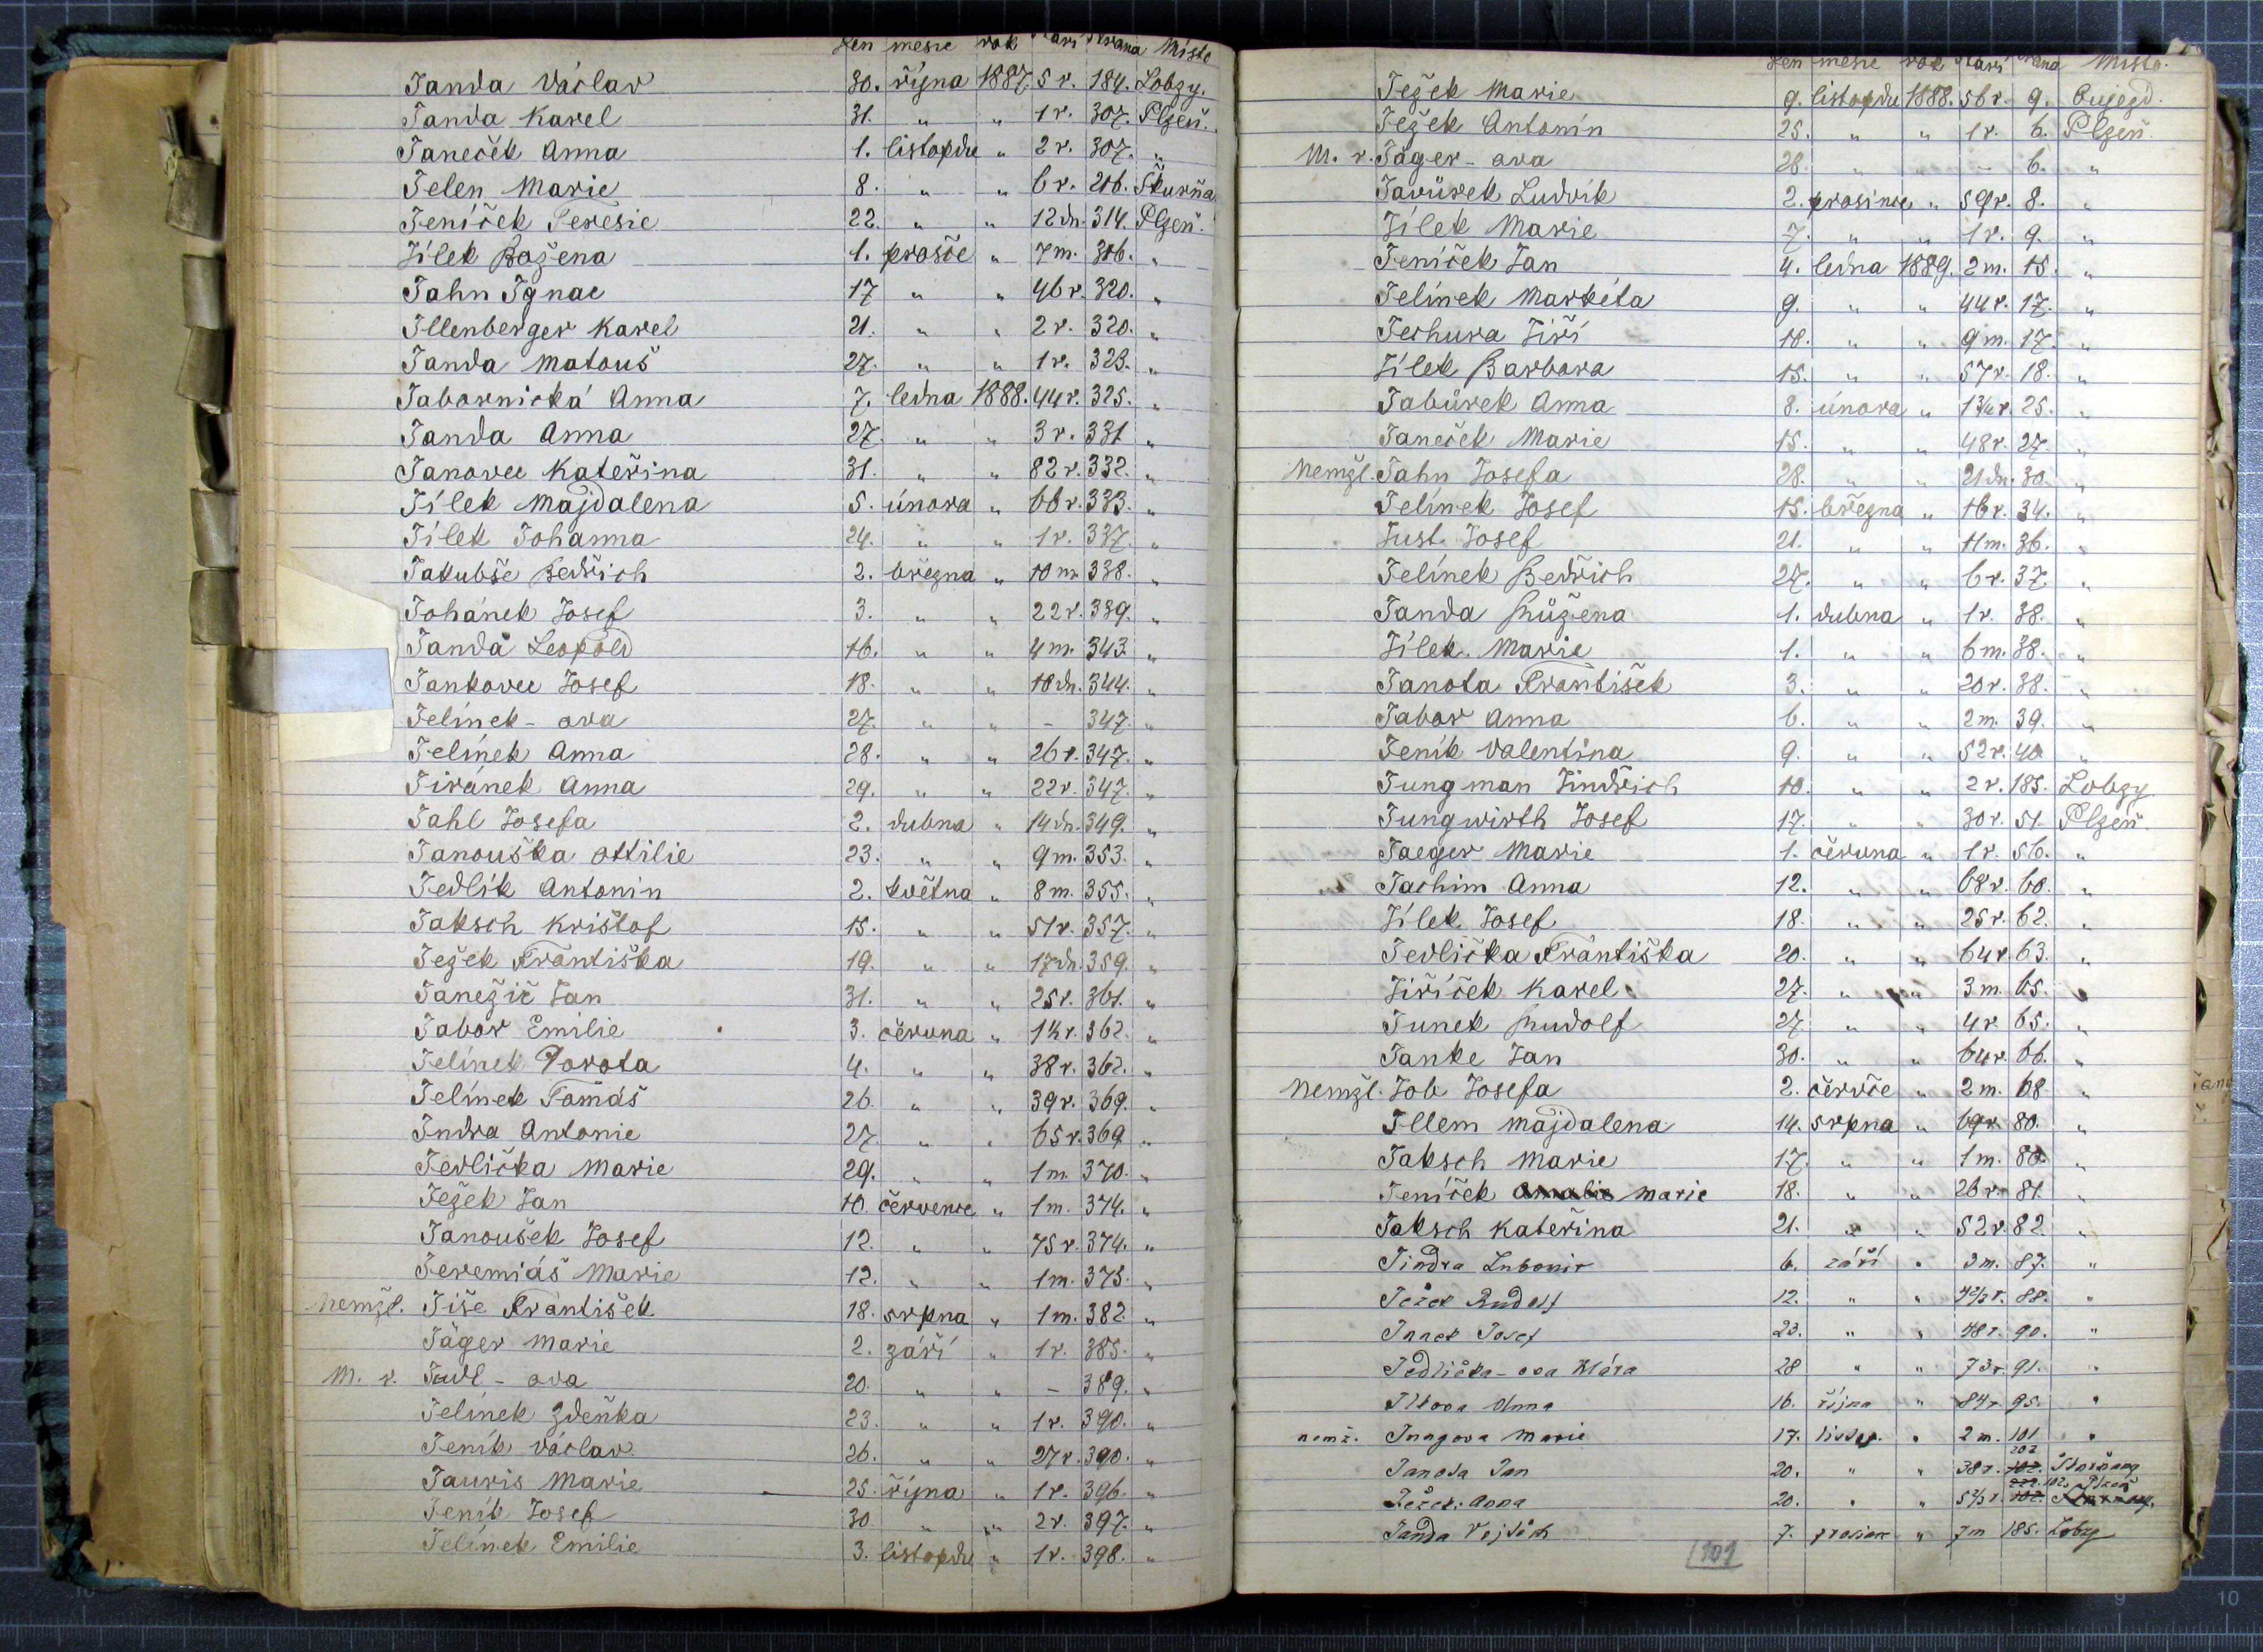 den měsíc rok stáří strana Místo
Janda Václav 30. října 1887. 5 r. 184. Lobzy.
Janda Karel 31. " " 1 r. 307. Plzeň.
Janeček Anna 1. listopdu " 2 r. 307. "
Jelen Marie 8. " " 6 r. 216. Škurňa
Jeníček Teresie 22. " " 12 dn. 314. Plzeň.
Jílek Božena 1. prosce " 7 m. 316. "
Jahn Ignac 17 " " 46 r. 320. "
Illenberger Karel 21. " " 2 r. 320. "
Janda Matouš 27. " " 1 r. 323. "
Jabornická Anna 7. ledna 1888. 44 r. 325. "
Janda Anna 27. " " 3 r. 331 "
Janovec Kateřina 31. " " 82 r. 332. "
Jílek Majdalena 5. února " 66 r. 333. "
Jílek Johanna 24. " " 1 r. 337. "
Jakubše Bedřich 2. března " 10 m. 338. "
Johánek Josef 3. " " 22 r. 339. "
Janda Leopold 16. " " 4 m. 343 "
Jankovec Josef 18. " " 10 dn. 344. "
Jelínek - ova 27. " " - 347. "
Jelínek Anna 28. " " 26 r. 347. "
Jiránek Anna 29. " " 22 r. 347. "
Jahl Josefa 2. dubna " 14 dn. 349. "
Janouška Ottilie 23. " " 9 m. 353. "
Jedlík Antonín 2. května " 8 m. 355. "
Jaksch Krištof 15. " " 51 r. 357. "
Ježek Františka 19. " " 17 dn. 359. "
Janežič Jan 31. " " 25 r. 361. "
Jabor Emilie 3. června " 1½ r. 362. "
Jelínek Dorota 4. " " 38 r. 362. "
Jelínek Tomáš 26. " " 39 r. 369. "
Jndra Antonie 27 " " 65 r. 369 "
Jedlička Marie 29. " " 1 m. 370. "
Ježek Jan 10. července " 1 m. 374. "
Janoušek Josef 12. " " 75 r. 374. "
Jeremiáš Marie 12. " " 1 m. 375. "
Nemžl. Jiše František 18. srpna " 1 m. 382. "
Jäger Marie 2. září " 1 r. 385. "
M. r. - ova 20. " " - 389. "
Jelínek Zdeňka 23. " " 1 r. 390. "
Jeník Václav 26. " " 27 r. 390. "
Jauris Marie 25. října " 1 r. 396. "
Jeník Josef 30 " " 2 r. 397. "
Jelínek Emilie 3. listopdu " 1 r. 398. "
den měsíc rok stáří strana Místo.
Ježek Marie 9. listopdu 1888. 56 r. 9. Oujezd.
Ježek Antonín 25. " " 1 r. 6. Plzeň.
M. r. Jäger - ova 28. " " - 6. "
Javůrek Ludvík 2. prosince " 59 r. 8. "
Jílek Marie 7. " " 1 r. 9. "
Jeníček Jan 4. ledna 1889. 2 m. 15. "
Jelínek Markéta 9. " " 44 r. 17. "
Jechura Jiří 10. " " 9 m. 17. "
Jílek Barbora 15. " " 57 r. 18. "
Jabůrek Anna 8. února " 1¾ r. 25. "
Janeček Marie 15. " " 48 r. 27. "
Nemžl. Jahn Josefa 28. " " 21 dn. 30. "
Jelínek Josef 15. března " 16 r. 34. "
Just. Josef 21. " " 11 m. 36. "
Jelínek Bedřich 27. " " 6 r. 37. "
Janda Růžena 1. dubna " 1 r. 38. "
Jílek Marie 1. " " 6 m. 38. "
Janota František 3. " " 20 r. 38. "
Jabor Anna 6. " " 2 m. 39. "
Jeník Valentina 9. " " 52 r. 40 "
Jungman Jindřich 10. " " 2 r. 185. Lobzy.
Jungwirth Josef 17. " " 30 r. 51. Plzeň.
Jaeger Marie 1. června " 1 r. 56. "
Jachim Anna 12. " " 68 r. 60. "
Jílek Josef 18. " " 25 r. 62. "
Jedlička Františka 20. " " 64 r. 63. "
Jiříček Karel 27. " " 3 m. 65. "
Junek Rudolf 27. " " 4 r. 65. "
Janke Jan 30. " " 64 r. 66. "
Nemžl. Job Josefa 2. červce " 2 m. 68. "
Illem Majdalena 14. srpna " 69 r. 80. "
Jaksch Marie 17. " " 1 m. 80. "
Jeníček Amalie Marie 18. " " 26 r. 81. "
Jaksch Kateřina 21. " " 52 r. 82. "
Jindra Lubomír 6. září " 3 m. 87. "
Ježek Rudolf 12. " " 4 2/3 r. 88. "
Josef 23. " " 48 r. 90. "
Jedlička - ova Klára 28 " " 73 r. 91. "
Anna 16. října " 84 r. 95. "
nemž. Marie 17. listop. " 2 m. 101 "
Janota Jan 20. " " 38 r. 102. 202 Škvrňany
Ježek Anna 20. " " 5 2/3 r. 102. 102. Plzeň
Janda Vojtěch 7. prosince " 7 m 185. Lobzy
101